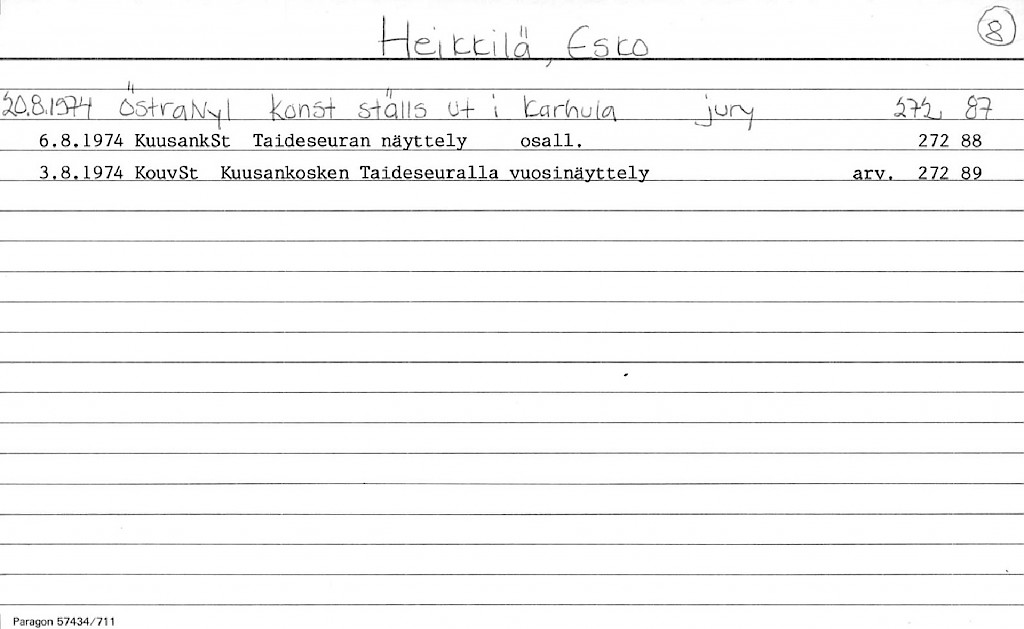 Heikkilä, Esko 8
20.8.1974 ÖstraNyl konst ställs ut i Karhula jury 272 87
6.8.1974 KuusankSt Taideseuran näyttely osall. 272 88
3.8.1974 KouvSt Kuusankosken Taideseuralla vuosinäyttely arv. 272 89
Paragon 57434/711